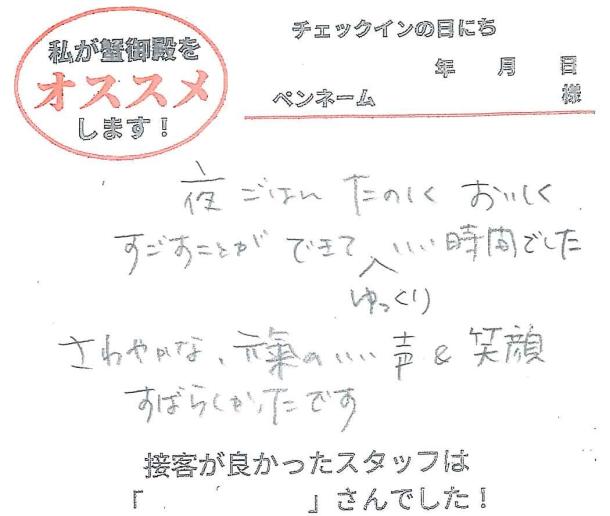 私が蟹御殿を
オススメ
します！
チェックインの日にち
年 月 日
ペンネーム 様
夜ごはん たのしく おいしく
すごすことが できて いい時間でした
ゆっくり
さわやかな、元氣のいい声 & 笑顔
すばらしかったです
接客が良かったスタッフは
「 」さんでした！